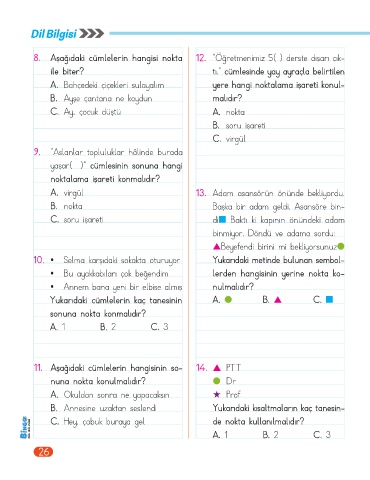 Dil Bilgisi
8. Aşağıdaki cümlelerin hangisi nokta
ile biter?
A. Bahçedeki çiçekleri sulayalım
B. Ayşe çantana ne koydun
C. Ay, çocuk düştü
9. "Aslanlar topluluklar hâlinde burada
yaşar( )" cümlesinin sonuna hangi
noktalama işareti konmalıdır?
A. virgül
B. nokta
C. soru işareti
10. • Selma karşıdaki sokakta oturuyor
• Bu ayakkabıları çok beğendim
• Annem bana yeni bir elbise almış
Yukarıdaki cümlelerin kaç tanesinin
sonuna nokta konmalıdır?
A. 1 B. 2 C. 3
11. Aşağıdaki cümlelerin hangisinin so-
nuna nokta konulmalıdır?
A. Okuldan sonra ne yapacaksın
B. Annesine uzaktan seslendi
C. Hey, çabuk buraya gel
12. "Öğretmenimiz 5( ) derste dışarı çık-
tı." cümlesinde yay ayraçla belirtilen
yere hangi noktalama işareti konul-
malıdır?
A. nokta
B. soru işareti
C. virgül
13. Adam asansörün önünde bekliyordu.
Başka bir adam geldi. Asansöre bin-
di■ Baktı ki kapının önündeki adam
binmiyor. Döndü ve adama sordu:
▲Beyefendi birini mi bekliyorsunuz●
Yukarıdaki metinde bulunan sembol-
lerden hangisinin yerine nokta ko-
nulmalıdır?
A. ● B. ▲ C. ■
14. ▲ PTT
● Dr
★ Prof
Yukarıdaki kısaltmaların kaç tanesin-
de nokta kullanılmalıdır?
A. 1 B. 2 C. 3
26